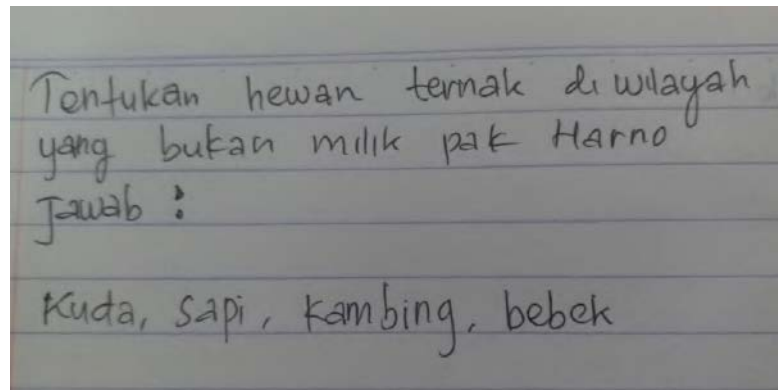 Tentukan hewan ternak di wilayah
yang bukan milik pak Harno
Jawab :
Kuda, sapi, kambing, bebek